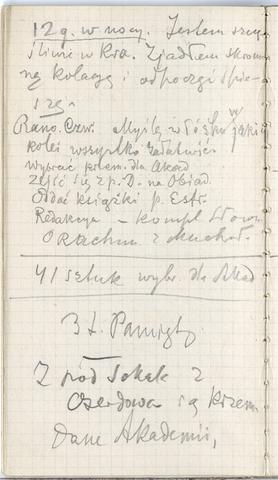 12 g. w nocy. Jestem szczę
śliwie w Kra. Zjadłem skrom
ną kolację i odpocząć śpie-
szę.
Rano. Czw. Myślę w łóżku w jakiej
kolei wszystko załatwić
wybrać krzem. dla Akad
zejść się z p. D. na Obiad
Oddać książki p. Estr.
Redakcya – kompl Słown
O Rachm z Muchow.
41 sztuk wybr. dla Akad
3 t. Pamięt.
Z pod Sokal z
są krzem
Dane Akademii,